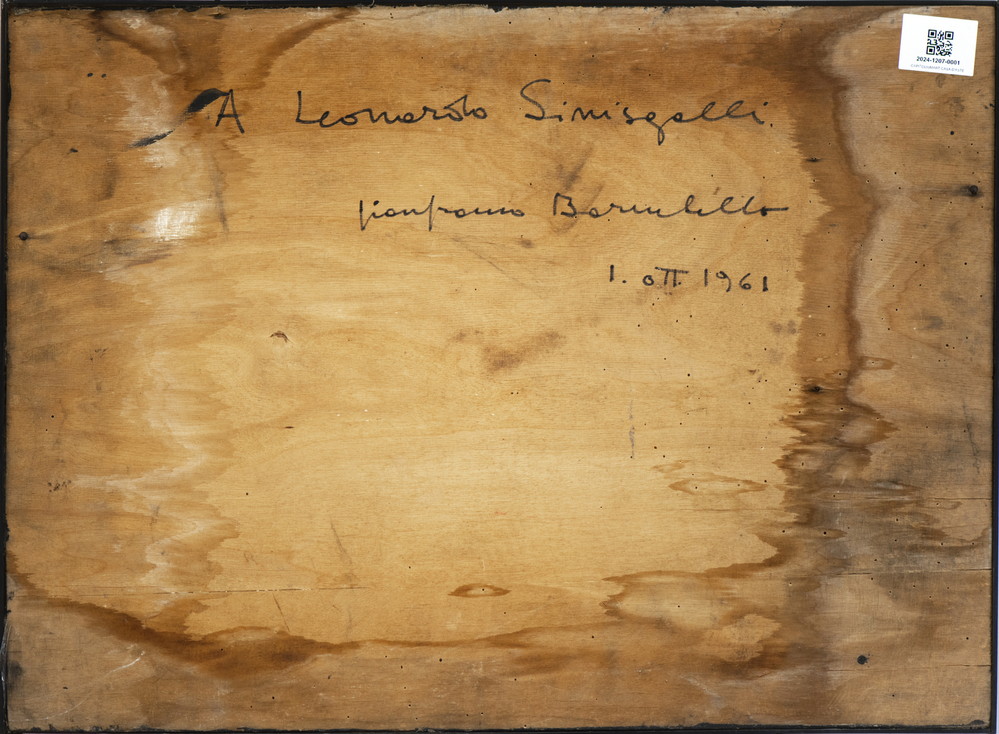 2024-1207-0001
A Leonardo Sinisgalli.
gianfranco Baruchello
1. ott 1961